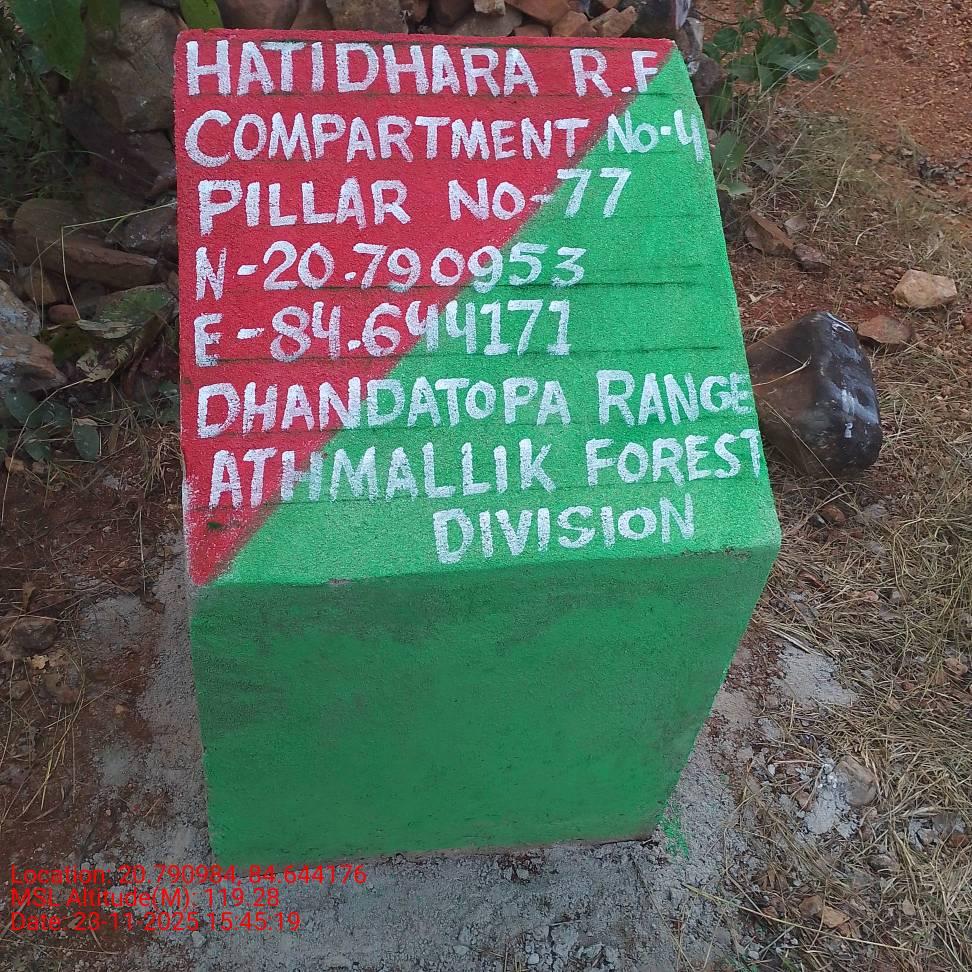 HATIDHARA R.F
COMPARTMENT No-4
PILLAR NO-77
N-20.790953
E-84.644171
DHANDATOPA RANGE
ATHMALLIK FOREST
DIVISION
Location: 20.790984, 84.644176
MSL Altitude(M): 119.28
Date: 23-11-2025 15:45:19